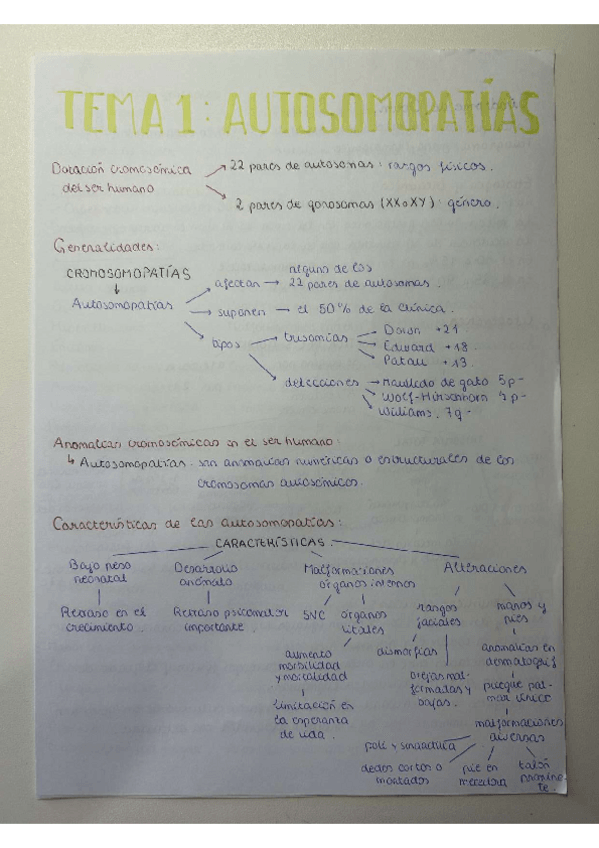 TEMA 1: AUTOSOMOPATÍAS
Dotación cromosómica → 22 pares de autosomas: rasgos físicos.
del ser humano → 2 pares de gonosomas (XX o XY): género.
Generalidades:
CROMOSOMOPATÍAS
↓
Autosomopatías
afectan → alguno de los
22 pares de autosomas.
suponen → el 50% de la clínica.
tipos
trisomías
Down +21
Edward +18.
Patau +13.
delecciones
Maullido de gato 5p-
Wolf-Hirschhorn 4p-
Williams. 7q-
Anomalías cromosómicas en el ser humano:
↳ Autosomopatías: son anomalías numéricas o estructurales de los
cromosomas autosómicos.
Características de las autosomopatías:
CARACTERÍSTICAS.
Bajo peso
neonatal
Retraso en el
crecimiento.
Desarrollo
anómalo
Retraso psicomotor
importante.
Malformaciones
órganos internos
SVC
órganos
vitales
aumento
morbilidad
y mortalidad
limitación en
la esperanza
de vida.
Alteraciones
rasgos
faciales
dismorfias
orejas mal-
formadas y
bajas.
manos y
pies
anomalías en
pliegue pal-
mar único
malformaciones
diversas
poli y sindactilia
dedos cortos o
montados
pie en
mecedora
talón
prominen-
te.